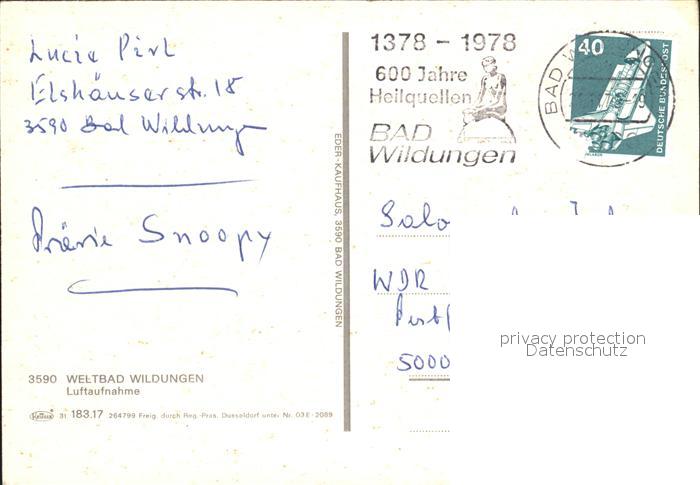 Lucie Pirl
Elshäuserstr. 18
3590 Bad Wildungen
Prärie Snoopy
3590 WELTBAD WILDUNGEN
Luftaufnahme
31 183.17 264799 Freig. durch Reg.-Präs. Düsseldorf unter Nr. 03 E - 2089
EDER-KAUFHAUS, 3590 BAD WILDUNGEN
1378 - 1978
600 Jahre
Heilquellen
BAD
Wildungen
BAD W
40
DEUTSCHE BUNDESPOST
Salo
WDR
Postf
5000
privacy protection
Datenschutz